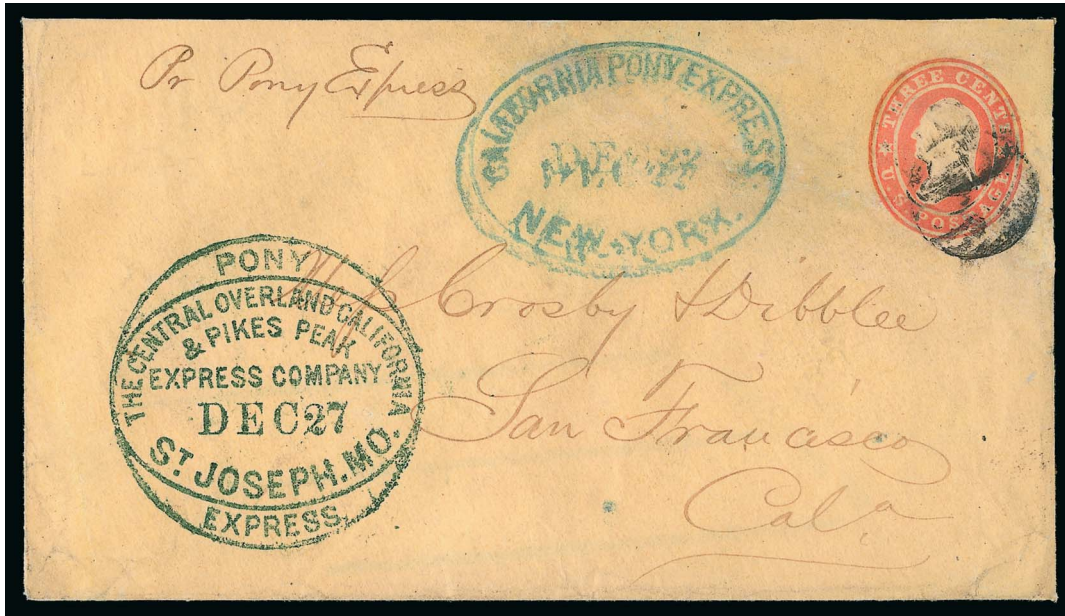 Pr Pony Express
CALIFORNIA PONY EXPRESS
NEW-YORK.
★ THREE CENTS ★
U.S. POSTAGE
PONY
THE CENTRAL OVERLAND CALIFORNIA
& PIKES PEAK
EXPRESS COMPANY
DEC 27
ST JOSEPH.MO.
EXPRESS
Crosby & Dibblee
San Francisco
Cala